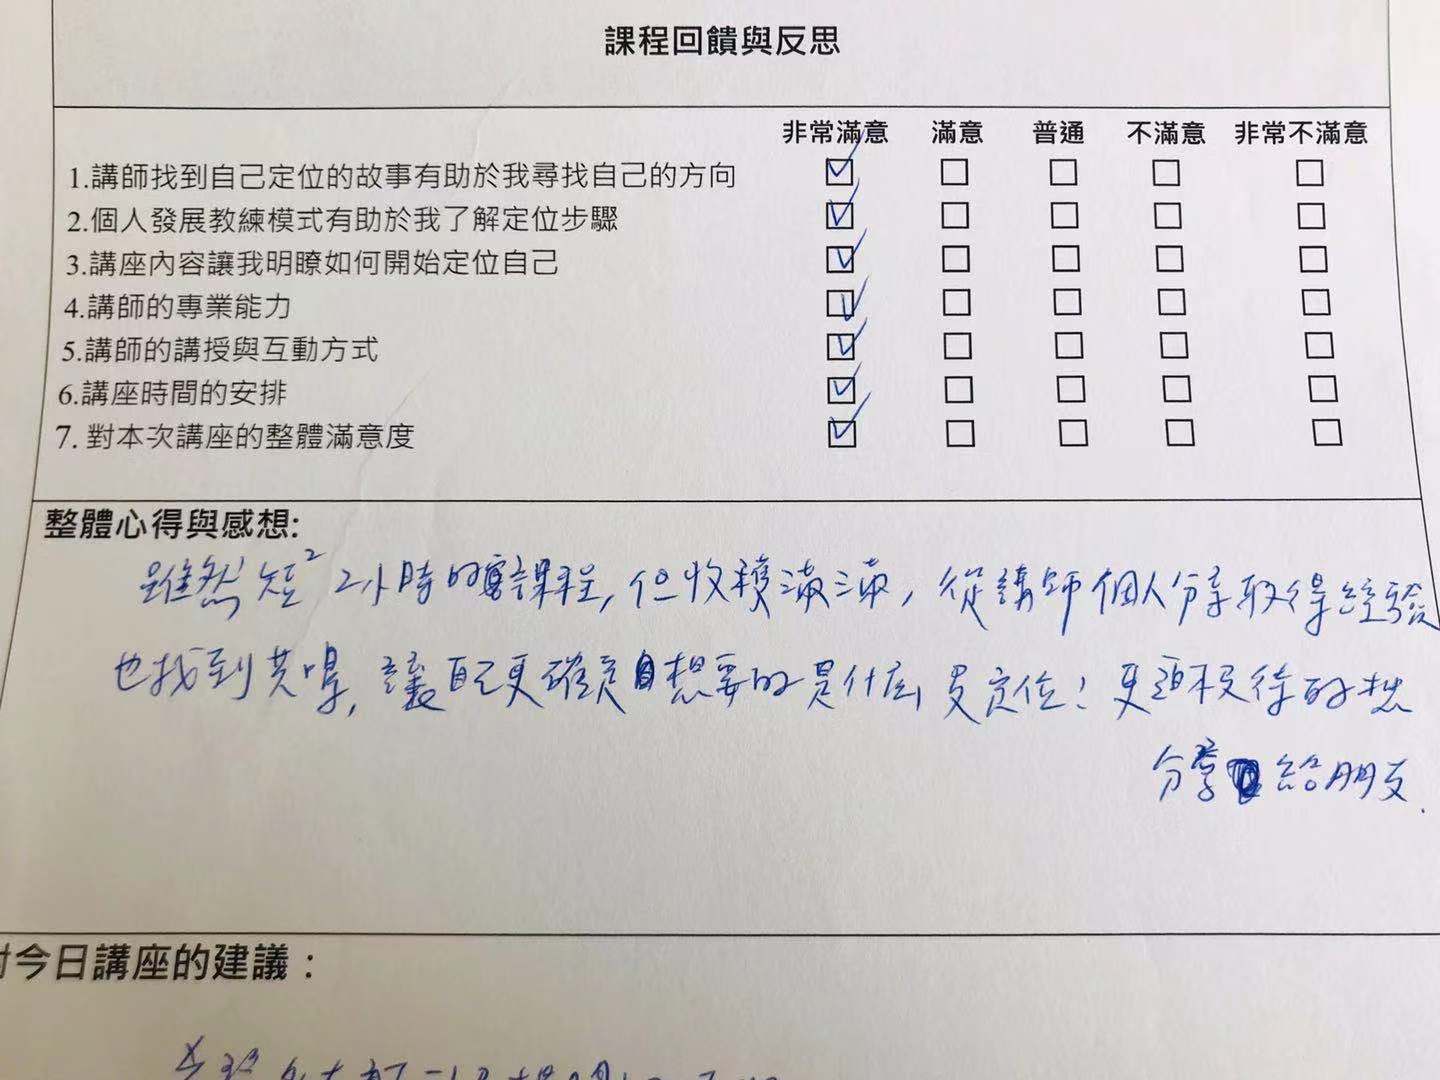 課程回饋與反思
非常滿意 滿意 普通 不滿意 非常不滿意
1.講師找到自己定位的故事有助於我尋找自己的方向
2.個人發展教練模式有助於我了解定位步驟
3.講座內容讓我明瞭如何開始定位自己
4.講師的專業能力
5.講師的講授與互動方式
6.講座時間的安排
7. 對本次講座的整體滿意度
整體心得與感想:
雖然短² 2小時的課程, 但收穫滿滿, 從講師個人分享取得經驗
也找到共鳴, 讓自己更確實想要的是什麼及定位! 更
分享給朋友.
對今日講座的建議：